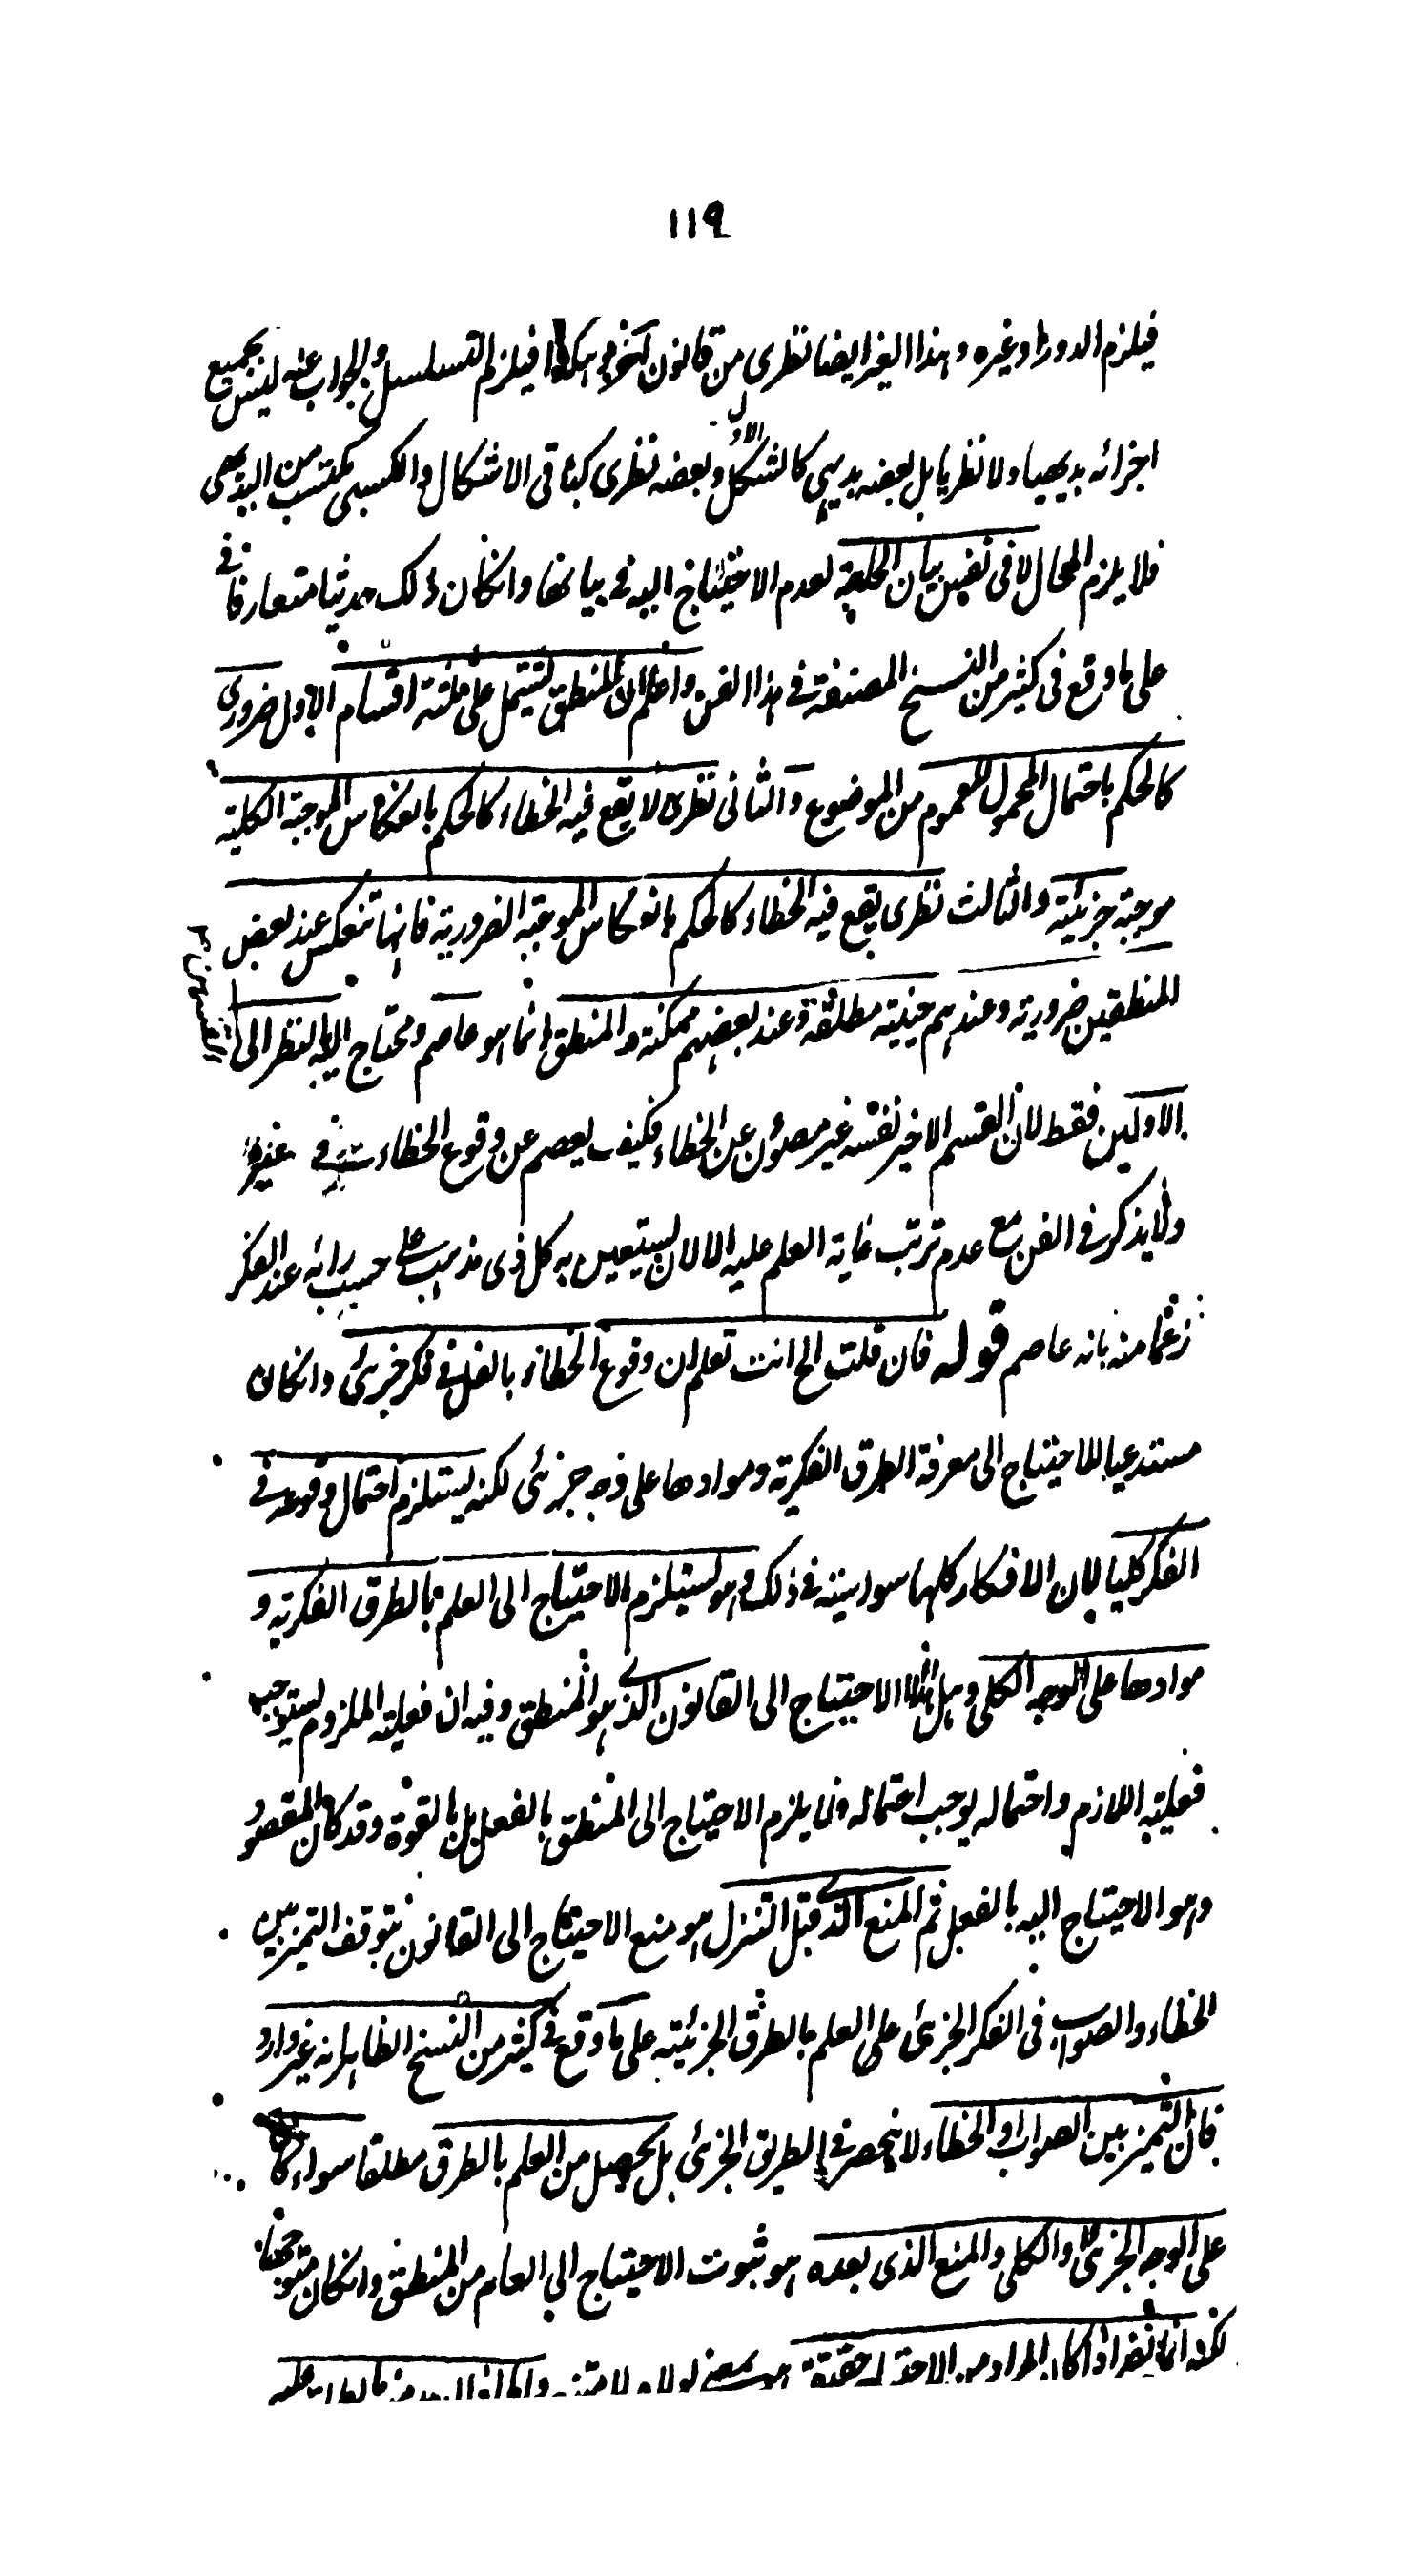 ١١٩
فيلزم الدور او غيره وهذا الغير ايضا نظرى من قانون آخر وهكذا فيلزم التسلسل والجواب عنه ليس بجميع
اجزائه بديهيا ولا نظريا بل بعضه بديهى كالشكل الاول وبعضه نظرى كباقى الاشكال والكسبى يكتسب من البديهى
فلا يلزم المحال لا فى نفس بيان الحاجة لعدم الاحتياج اليه فى بيانها وانكان ذلك متعارفا فى
على ما وقع فى كثير من النسخ المصنفة فى هذا الفن واعلم ان المنطق يشتمل على ثلثة اقسام الاول ضرورى
كالحكم باحتمال المحمول للعموم من الموضوع والثانى نظرى لا يقع فيه الخطاء كالحكم بانعكاس الموجبة الكلية
موجبة جزئية والثالث نظرى يقع فيه الخطاء كالحكم بانعكاس الموجبة الضرورية فانها تنعكس عند بعض
المنطقيين ضرورية وعندهم حينية مطلقة وعند بعضهم ممكنة والمنطق انما هو عاصم ومحتاج اليه بالنظر الى
القسمين ٢
الاولين فقط لان القسم الاخير نفسه غير مصئون عن الخطاء فكيف يعصم عن وقوع الخطاء فى غيره
ولا يذكر فى الفن مع عدم ترتب غاية العلم عليه الا لان يستعين به كل ذى مذهب على حسب رائه عند الفكر
زعما منه بانه عاصم قوله فان قلت الخ انت تعلم ان وقوع الخطاء بالفعل فى فكر جزئى وانكان
مستدعيا للاحتياج الى معرفة الطرق الفكرية وموادها على وجه جزئى لكنه يستلزم احتمال وقوعه فى
الفكر كليا لان الافكار كلها سواسية فى ذلك وهو يستلزم الاحتياج الى العلم بالطرق الفكرية و
موادها على الوجه الكلى وهل هذا الا الاحتياج الى القانون الذى هو المنطق وفيه ان فعلية الملزوم يستوجب
فعلية اللازم واحتماله يوجب احتماله ولا يلزم الاحتياج الى المنطق بالفعل بل بالقوة وقد كان المقصود
وهو الاحتياج اليه بالفعل ثم المنع الذى قبل التنزل هو منع الاحتياج الى القانون بتوقف التميز بين
الخطاء والصواب فى الفكر الجزئى على العلم بالطرق الجزئية على ما وقع فى كثير من النسخ الظاهر انه غير وارد
فان التميز بين الصواب والخطاء لا ينحصر فى الطريق الجزئى بل يحصل من العلم بالطرق مطلقا سواء كان
على الوجه الجزئى والكلى والمنع الذى بعده هو ثبوت الاحتياج الى العام من المنطق وانكان متوجها
لكنه انما يضر اذا كان المراد من الاحتياج حقيقته